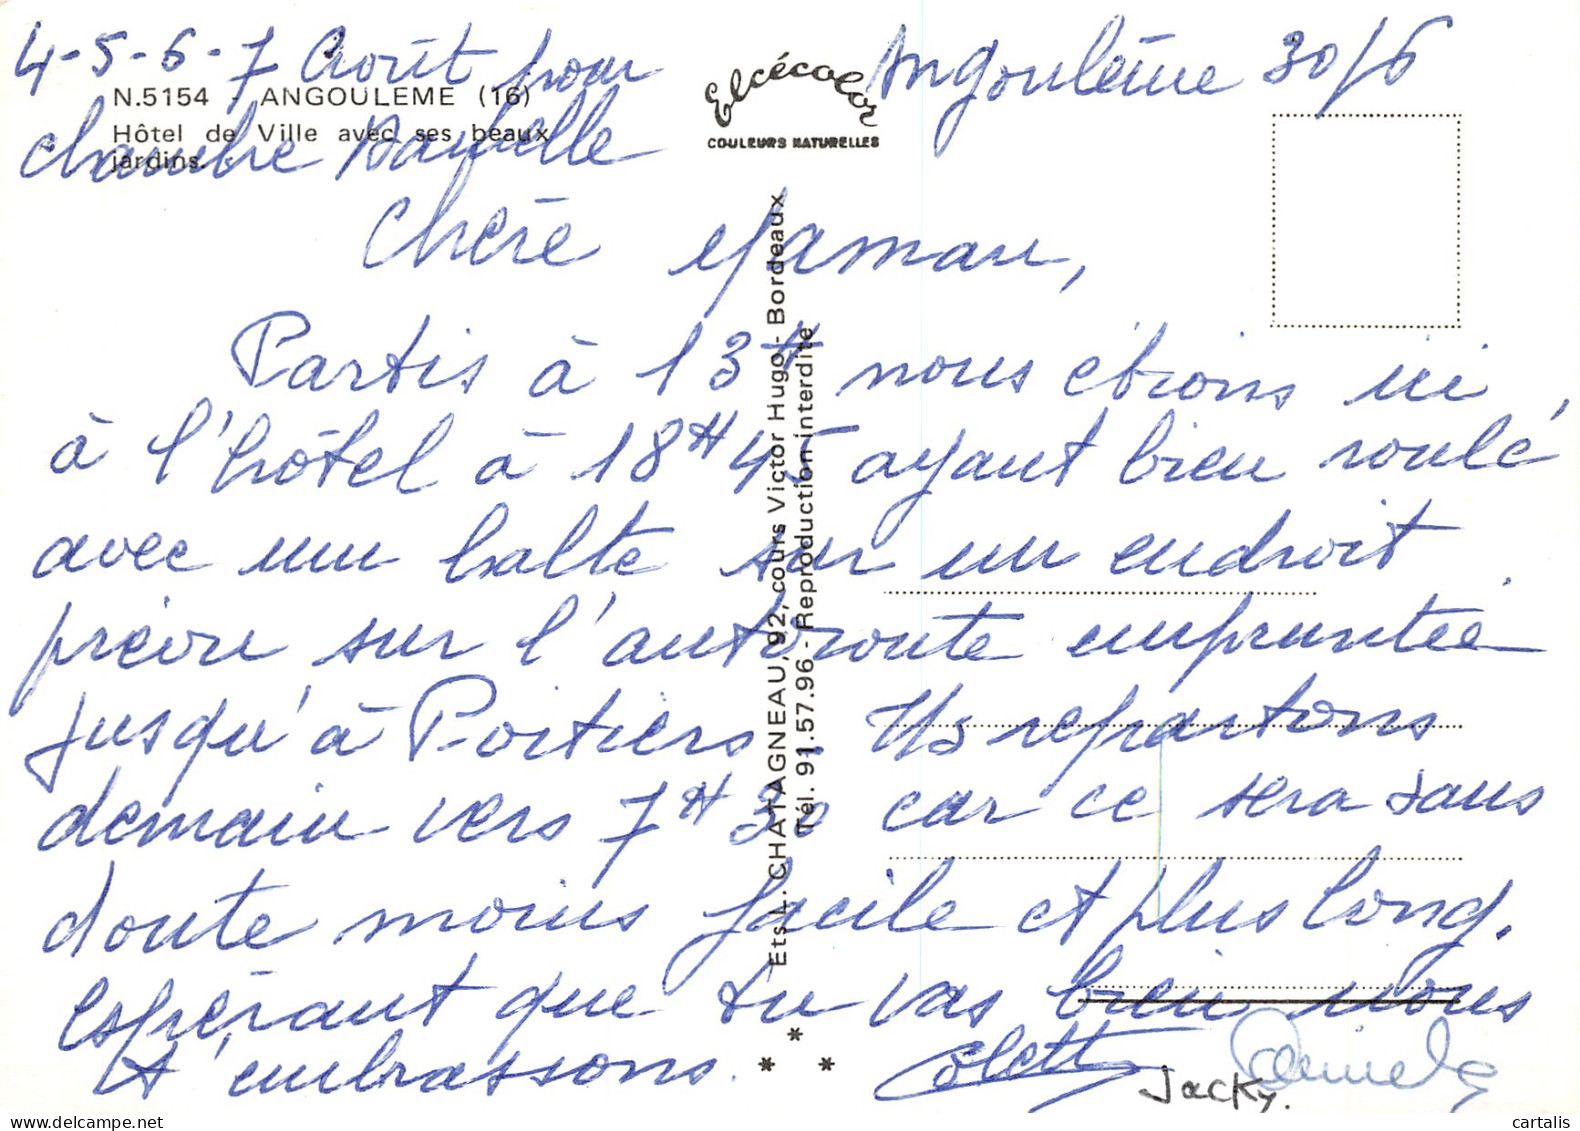 4-5-6-7 Août pour
chambre
Angoulême 30/6
N.5154 - ANGOULEME (16)
Hôtel de Ville avec ses beaux
jardins.
Elcécolor
COULEURS NATURELLES
Chère Maman,
Partis à 13H nous étions ici
à l'hôtel à 18H45 ayant bien roulé,
avec une halte sur un endroit
prévu sur l'autoroute empruntée
jusqu'à Poitiers. Ns repartons
demain vers 7H30 car ce sera sans
doute moins facile et plus long.
Espérant que tu vas bien nous
t'embrassons.
Colette
Jacky.
Ets L. CHATAGNEAU, 92, cours Victor Hugo - Bordeaux
Tél. 91.57.96 - Reproduction interdite
cartalis
delcampe.net